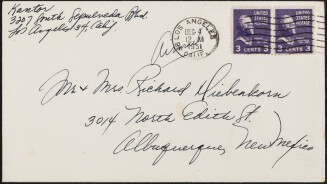 Kantor
3207 South Sepulveda Blvd.
Los Angeles 34, Calif
LOS ANGELES
DEC 4
12 M
1951
CALIF.
3 CENTS 3
3 CENTS 3
Air
Mr & Mrs Richard Diebenkorn
3014 North Edith St.
Albuquerque, New Mexico